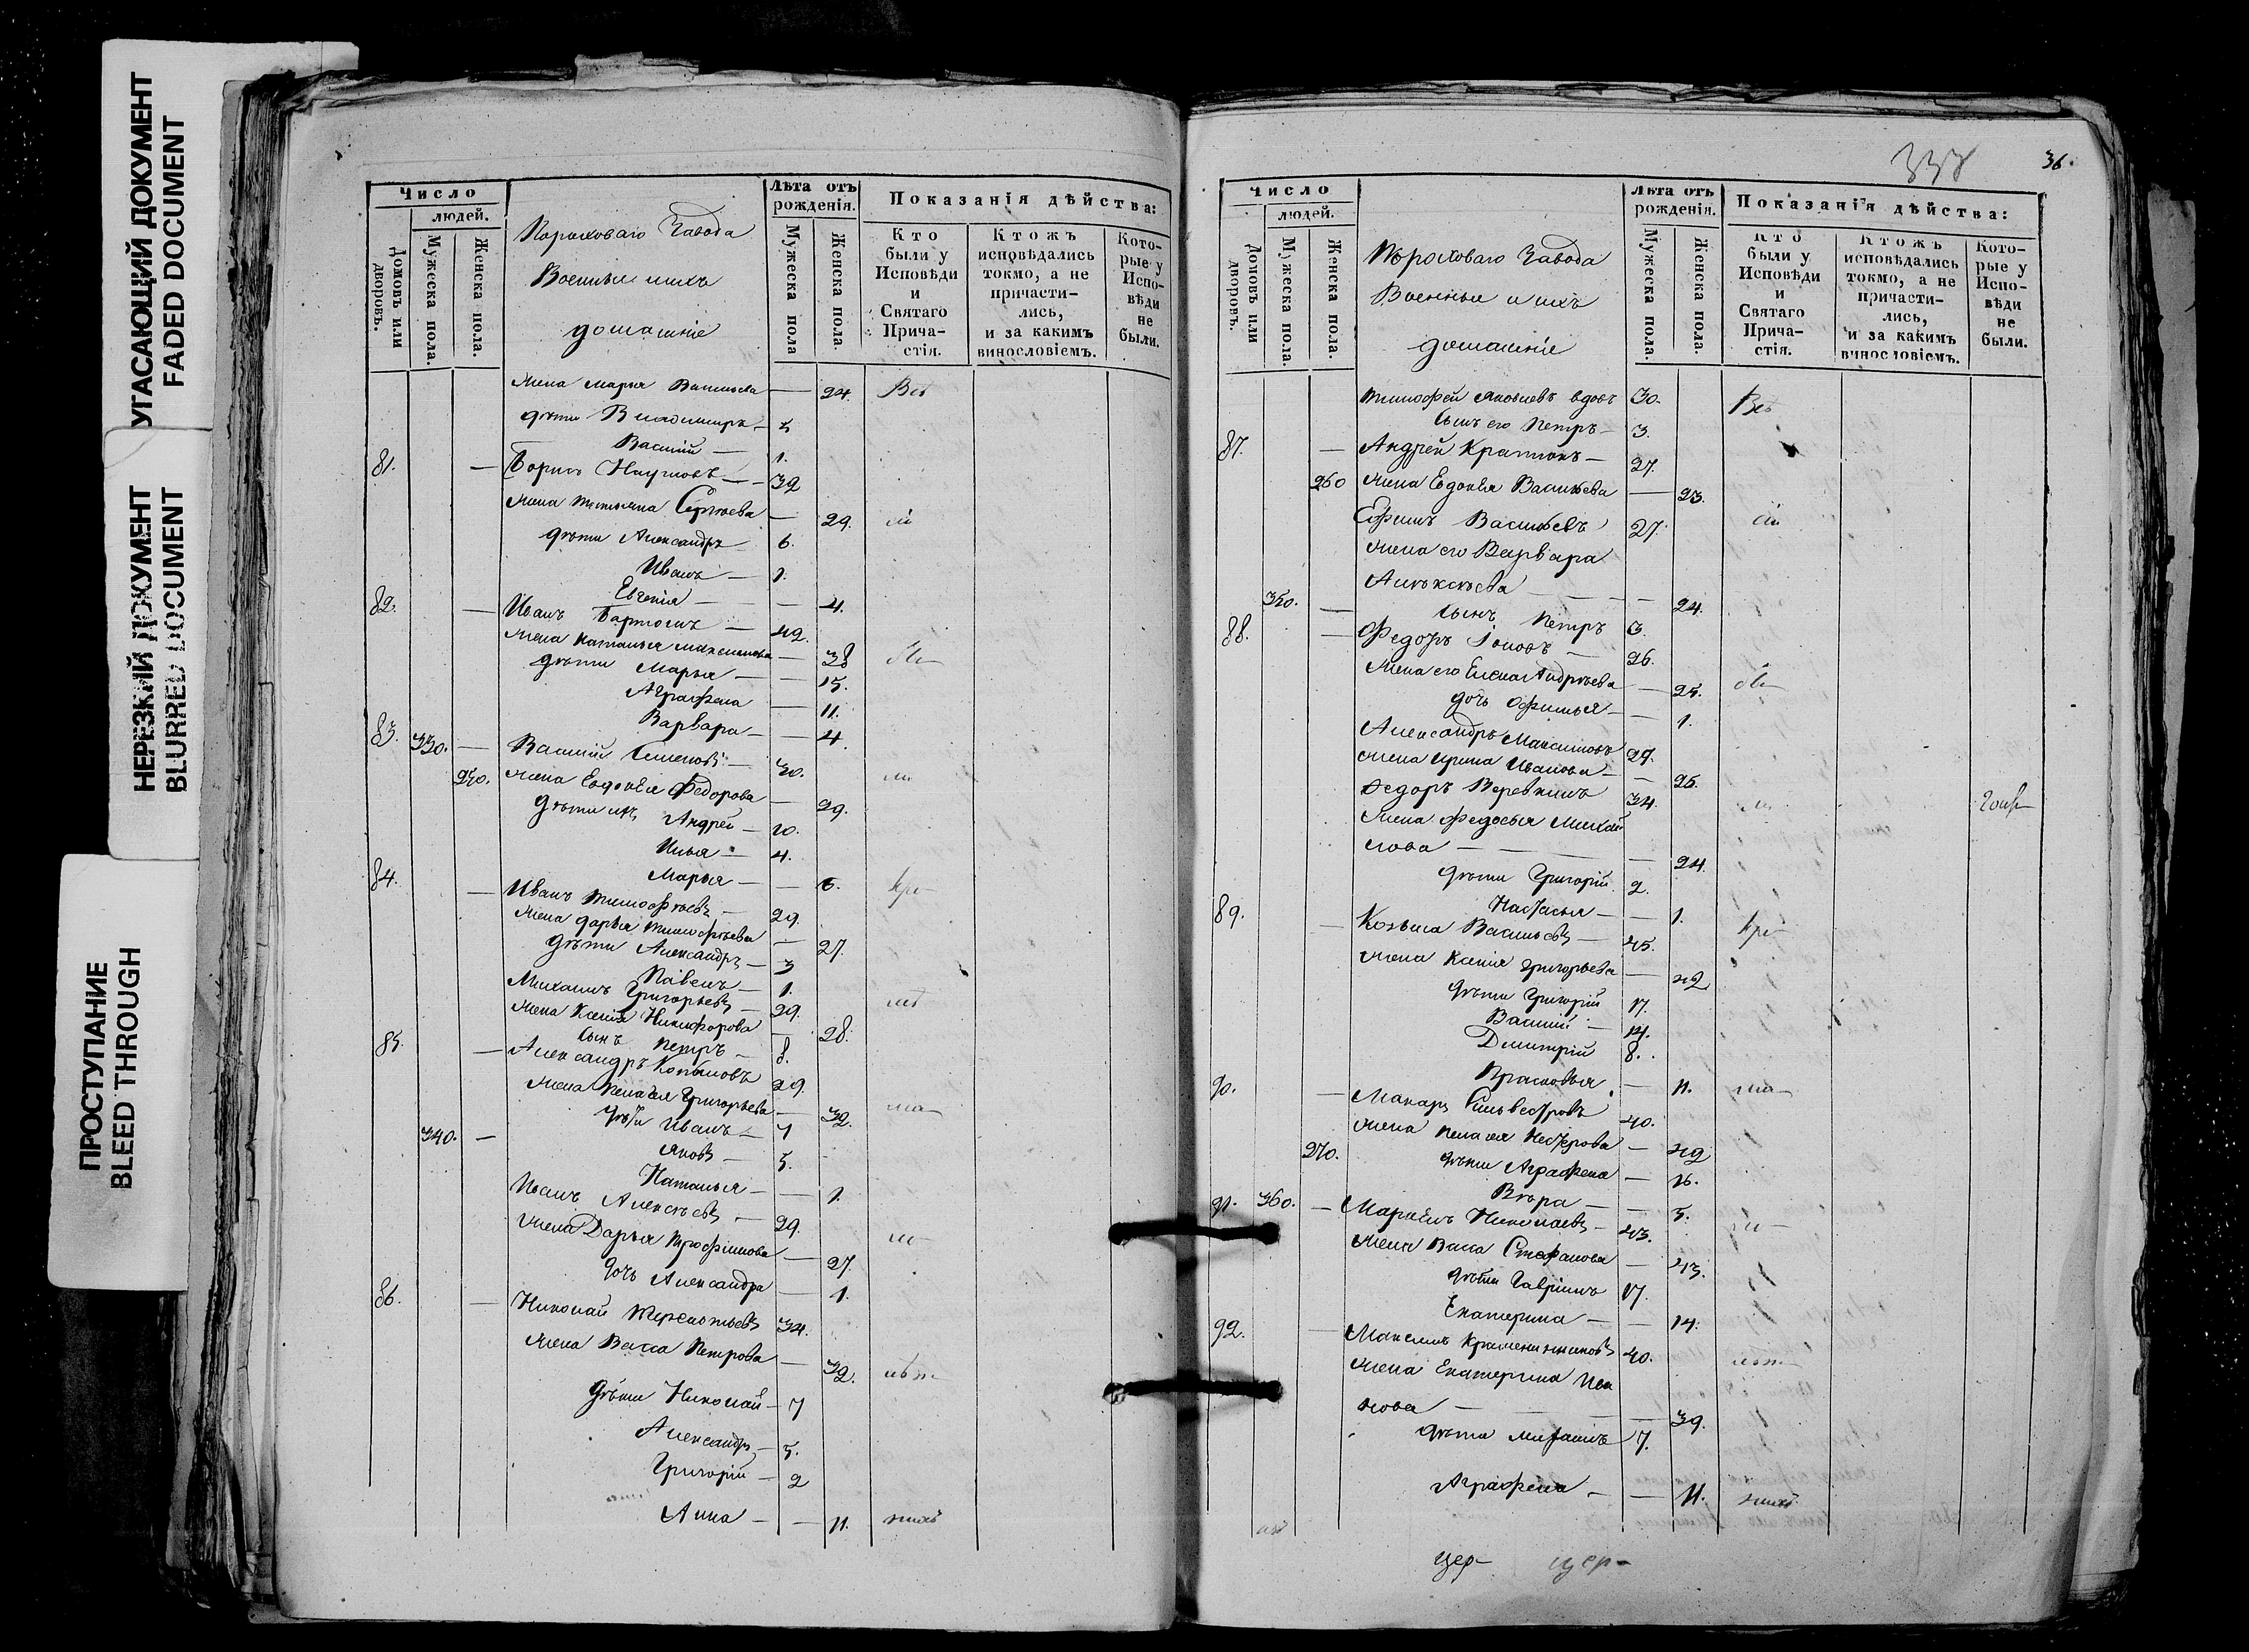 УГАСАЮЩИЙ ДОКУМЕНТ
FADED DOCUMENT
НЕРЕЗКИЙ ДОКУМЕНТ
BLURRED DOCUMENT
ПРОСТУПАНИЕ
BLEED THROUGH
Число
людей.
Домовъ или дворовъ.
Мужеска пола.
Женска пола.
Пороховаго Завода
Военные и ихъ
домашніе
Лѣта отъ рожденія.
Мужеска пола
Женска пола.
Показанія дѣйства:
Кто были у Исповѣди и Святаго Прича-стія.
Ктожъ исповѣдались токмо, а не причасти-лись, и за какимъ винословіемъ.
Кото-рые у Испо-вѣди не были.
жена Марья Васильева — 24. Всѣ
дѣти Владимиръ — 5
Василій — 1.
81. — Борисъ Наумовъ — 32
жена Татьяна Сергѣева — 29.
дѣти Александръ 6.
Иванъ — 1.
Евгенія — — 4.
82. — Иванъ — 42.
жена Наталья Максимова — 38
дѣти Марья — — 15.
Аграфена — 11.
Варвара — — 4.
83. 330. — Василій Семеновъ — 30.
250. жена Евдокія Федорова — 29.
дѣти ихъ Андрей — 10.
Илья — 4.
Марья — — 6.
84. — Иванъ Тимофѣевъ — 29.
жена Дарья Тимофѣева — 27.
дѣти Александръ — 3
Павелъ — 1.
Михаилъ Григорьевъ — 29.
жена Ксенія Никифорова — 28.
сынъ Петръ — 8.
85. — Александръ Копыловъ 29.
жена Пелагея Григорьева — 32.
дѣти Иванъ — 7
340. — Яковъ — 5.
Наталья — — 1.
Иванъ Алексѣевъ — 29.
жена Дарья Трофимова — 27.
дочь Александра — 1.
86. — Николай Терентьевъ 34.
жена Васса Петрова — 32.
дѣти Николай — 7
Александръ — 5.
Григорій — 2
Анна — — 11.
338
36.
Число
людей.
Домовъ или дворовъ.
Мужеска пола.
Женска пола.
Пороховаго Завода
Военные и ихъ
домашніе
Лѣта отъ рожденія.
Мужеска пола.
Женска пола.
Показанія дѣйства:
Кто были у Исповѣди и Святаго Прича-стія.
Ктожъ исповѣдались токмо, а не причасти-лись, и за какимъ винословіемъ.
Кото-рые у Испо-вѣди не были.
Тимофей Яковлевъ вдовъ 30. Всѣ
сынъ его Петръ — 3.
87. — Андрей — 27.
260 жена Евдокія Васильева — 23.
Ефимъ Васильевъ 27.
жена его Варвара
Алексѣева — 24.
350. — сынъ Петръ 3.
88. — Федоръ Іоновъ — 26.
жена его Елена Андрѣева — 25.
дочь Офимья — — 1.
Александръ Максимовъ 29.
жена Ирина Иванова — — 25.
Федоръ Веревкинъ 34.
жена Федосья Михай
лова — — 24.
дѣти Григорій 2.
Настасья — — 1.
89. — Козьма Васильевъ — 45.
жена Ксенія Григорьева — 42
дѣти Григорій 17.
Василій — 14.
Дмитрій 8.
Прасковья — 11.
90. — Макаръ Сильвестровъ 40.
жена Пелагея Нестерова — 42
270. дѣти Аграфена — 16.
Вѣра — — 5.
91. 360. — Маркелъ Николаевъ — 43.
жена Васса Стефанова — 43.
дѣти Гавріилъ 17.
Екатерина — — 14.
92. — Максимъ Крашенинниковъ 40.
жена Екатерина Ива
нова — — 39.
дѣти Михаилъ 7.
Аграфена — — 11.